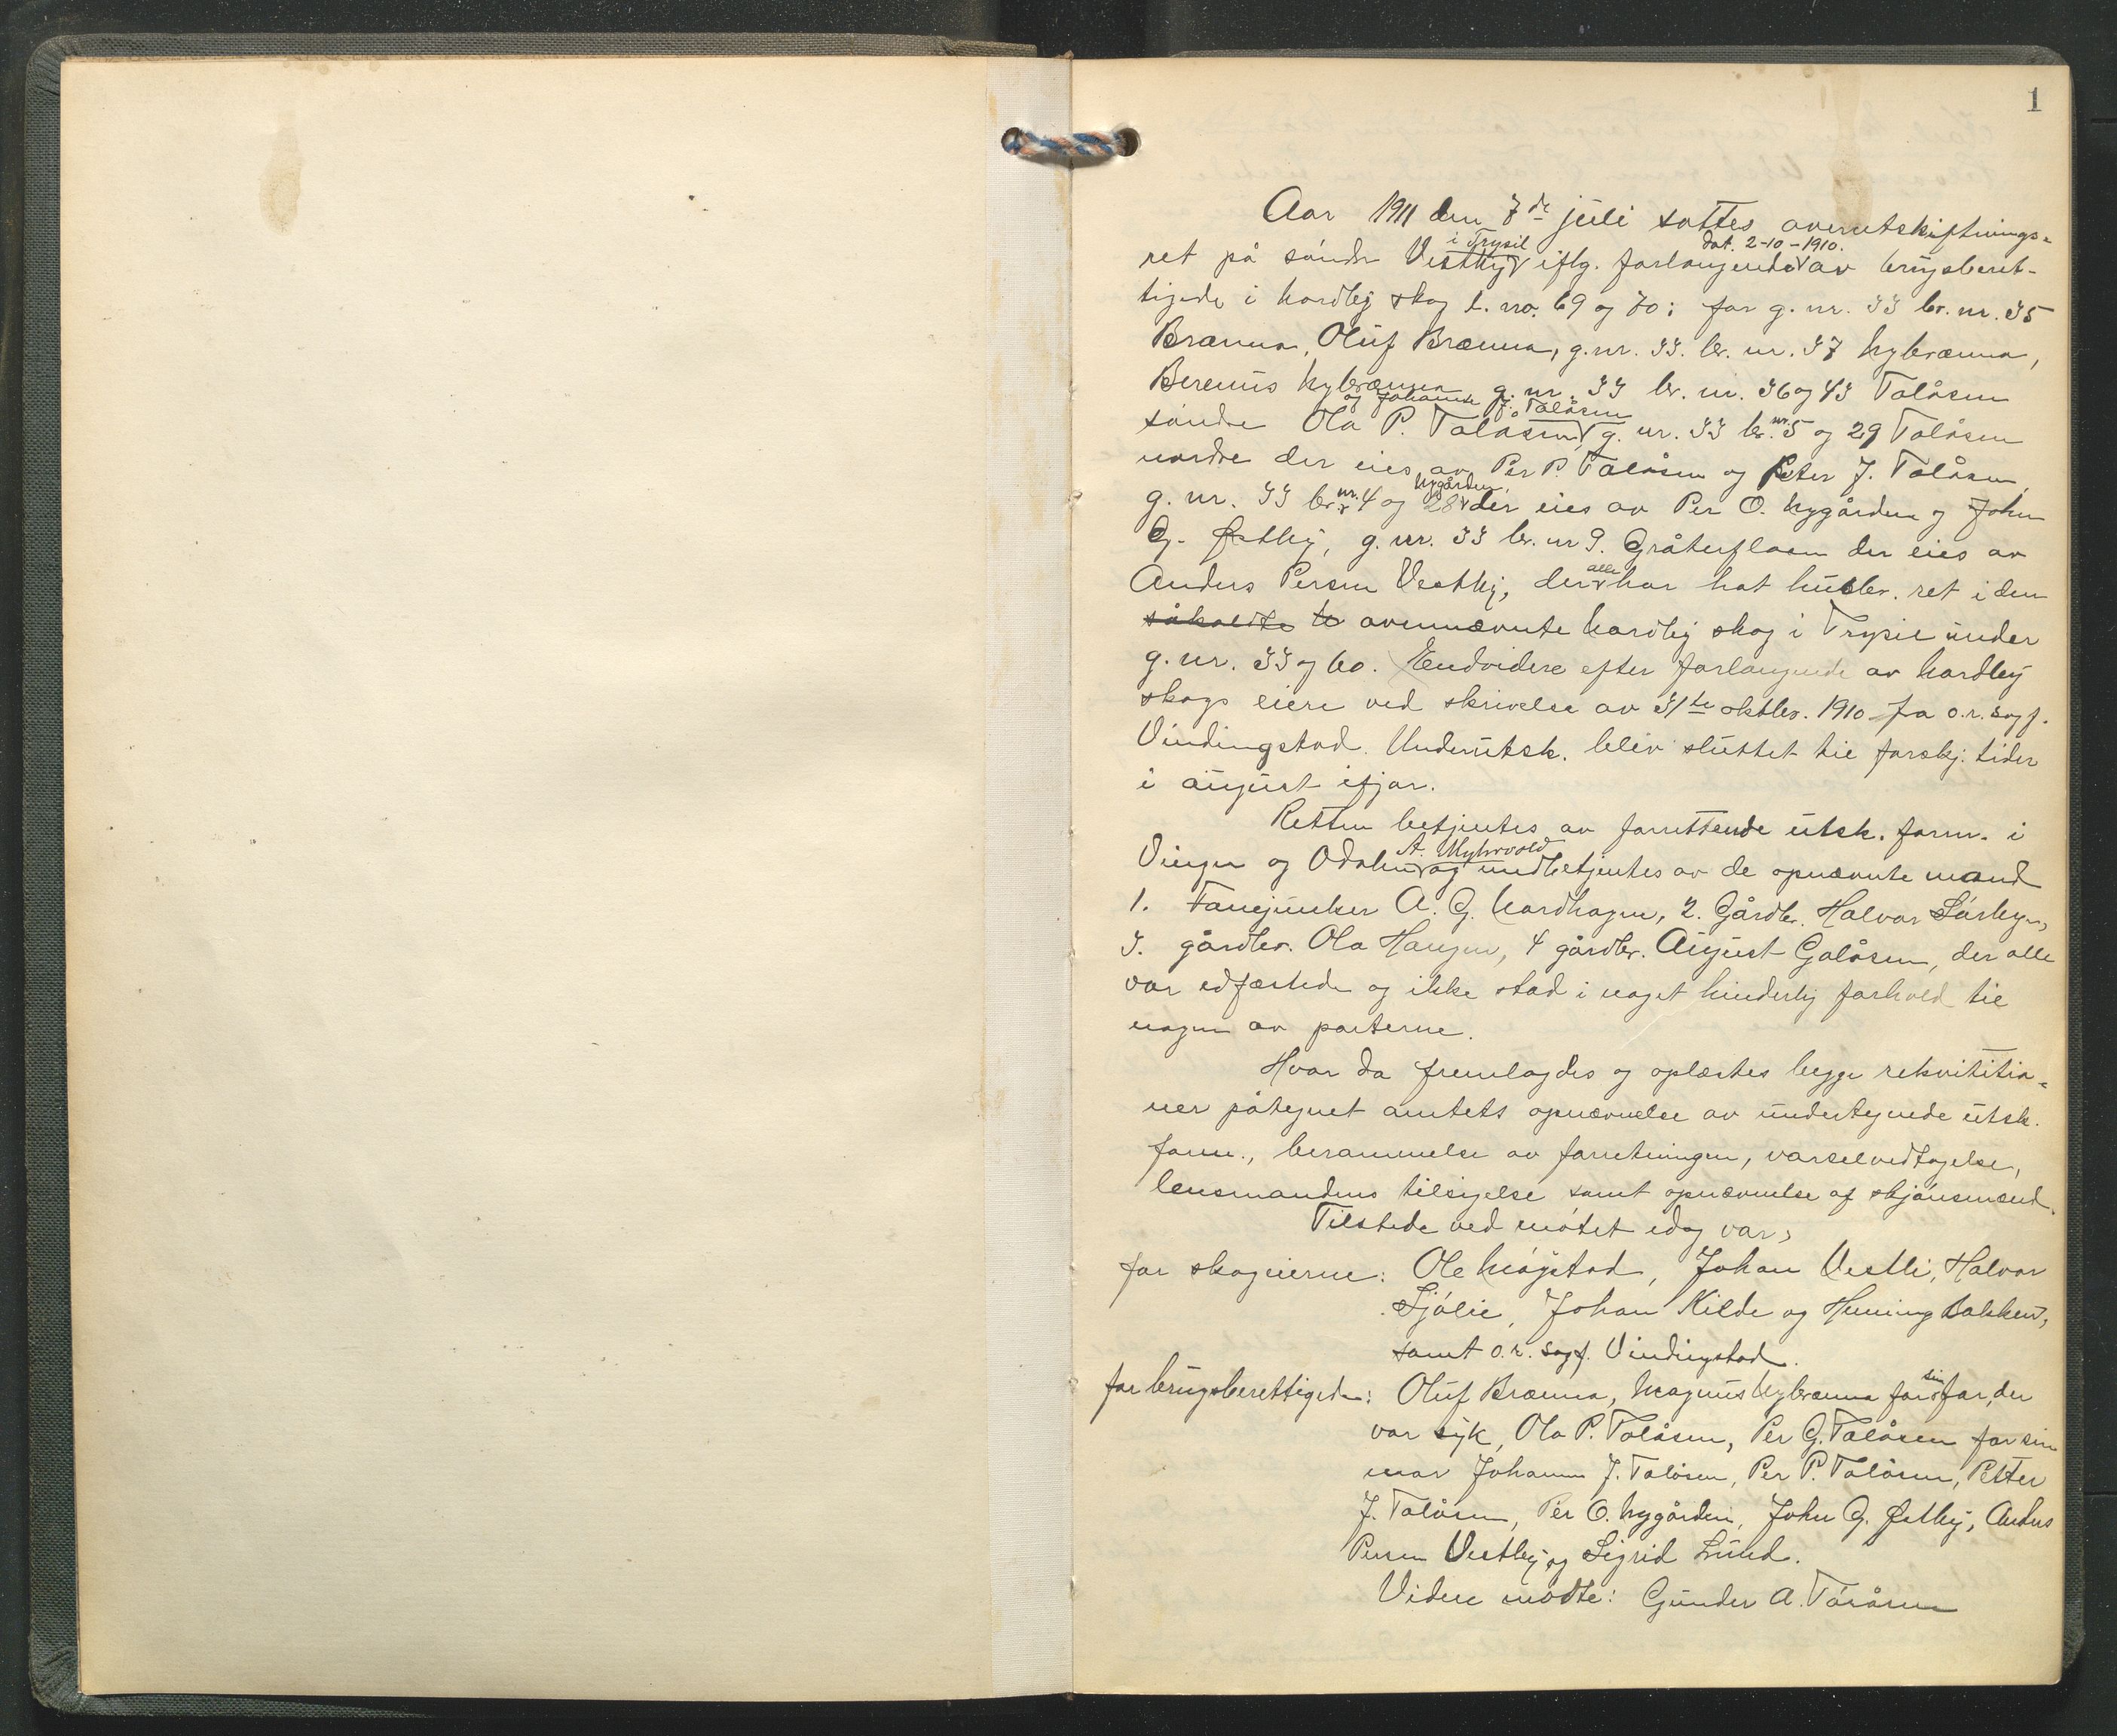 1
Aar 1911 den 7de juli sattes overutskiftnings-
i Trysil dat. 2-10-1910.
ret på søndr Vestby iflg. forlangende av brugsberet-
tigede i Nordby skog l. no. 69 og 70: for g. nr. 33 br. nr. 35
Brænna, Oluf Brænna, g. nr. 33. br. nr. 37 Nybrænna,
Berenus Nybrænna g. nr. 33 br. nr. 36 og 43 Talåsen
og Johannes J. Talåsen
søndre Ola P. Talåsen, g. nr. 33 br. nr. 5 og 29 Talåsen
nordre der eies av Per P. Talåsen og Peter J. Talåsen,
nygården,
g. nr. 33 br. nr. 4 og 28 der eies av Per O. Nygården og John
G. Østby, g. nr. 33 br. nr 9. Gråterfloen der eies av
Anders Persen Vestby, der alle har hat husbr. ret i den
såkaldte te ovennævnte Nordby skog i Trysil under
g. nr. 33 og 60. Endvidere efter forlangende av Nordby
skogs eiere ved skrivelse av 31te oktbr. 1910 fra o.r. sagf.
Vindingstad. Underutsk. blev sluttet til forskj. tider
i august ifjor.
Retten betjentes av forrettende utsk. form. i
A. Myhrvold
Vinger og Odalen og medbetjentes av de opnævnte mænd
1. Fanejunker A. G. Nordhagen, 2. Gårdbr. Halvor Sørbyen,
3. gårdbr. Ola Haugen, 4 gårdbr. August Galåsen, der alle
var edfæstede og ikke stod i noget hinderlig forhold til
nogen av parterne.
Hvor da fremlagdes og oplæstes begge rekvisitio-
ner påtegnet amtets opnævnelse av undertegnede utsk.
form., berammelse av forretningen, varselvedtagelse,
lensmandens tilsigelse samt opnævnelse af skjønsmænd.
Tilstede ved møtet idag var,
for skogeierne: Ole Møystad, Johan Vestli, Halvor
Sjølie, Johan Kilde og Henning Bakken,
samt o.r. sagf. Vindingstad.
for brugsberettigede: Oluf Brænna, Magnus Nybrænna for sin far, der
var syk, Ola P. Talåsen, Per J. Talåsen for sin
mor Johanne J. Talåsen, Per P. Talåsen, Petter
J. Talåsen, Per O. Nygården, John G. Østby, Anders
Persen Vestby, og Sigrid Lund.
Videre mødte: Gunder A. Töråsen